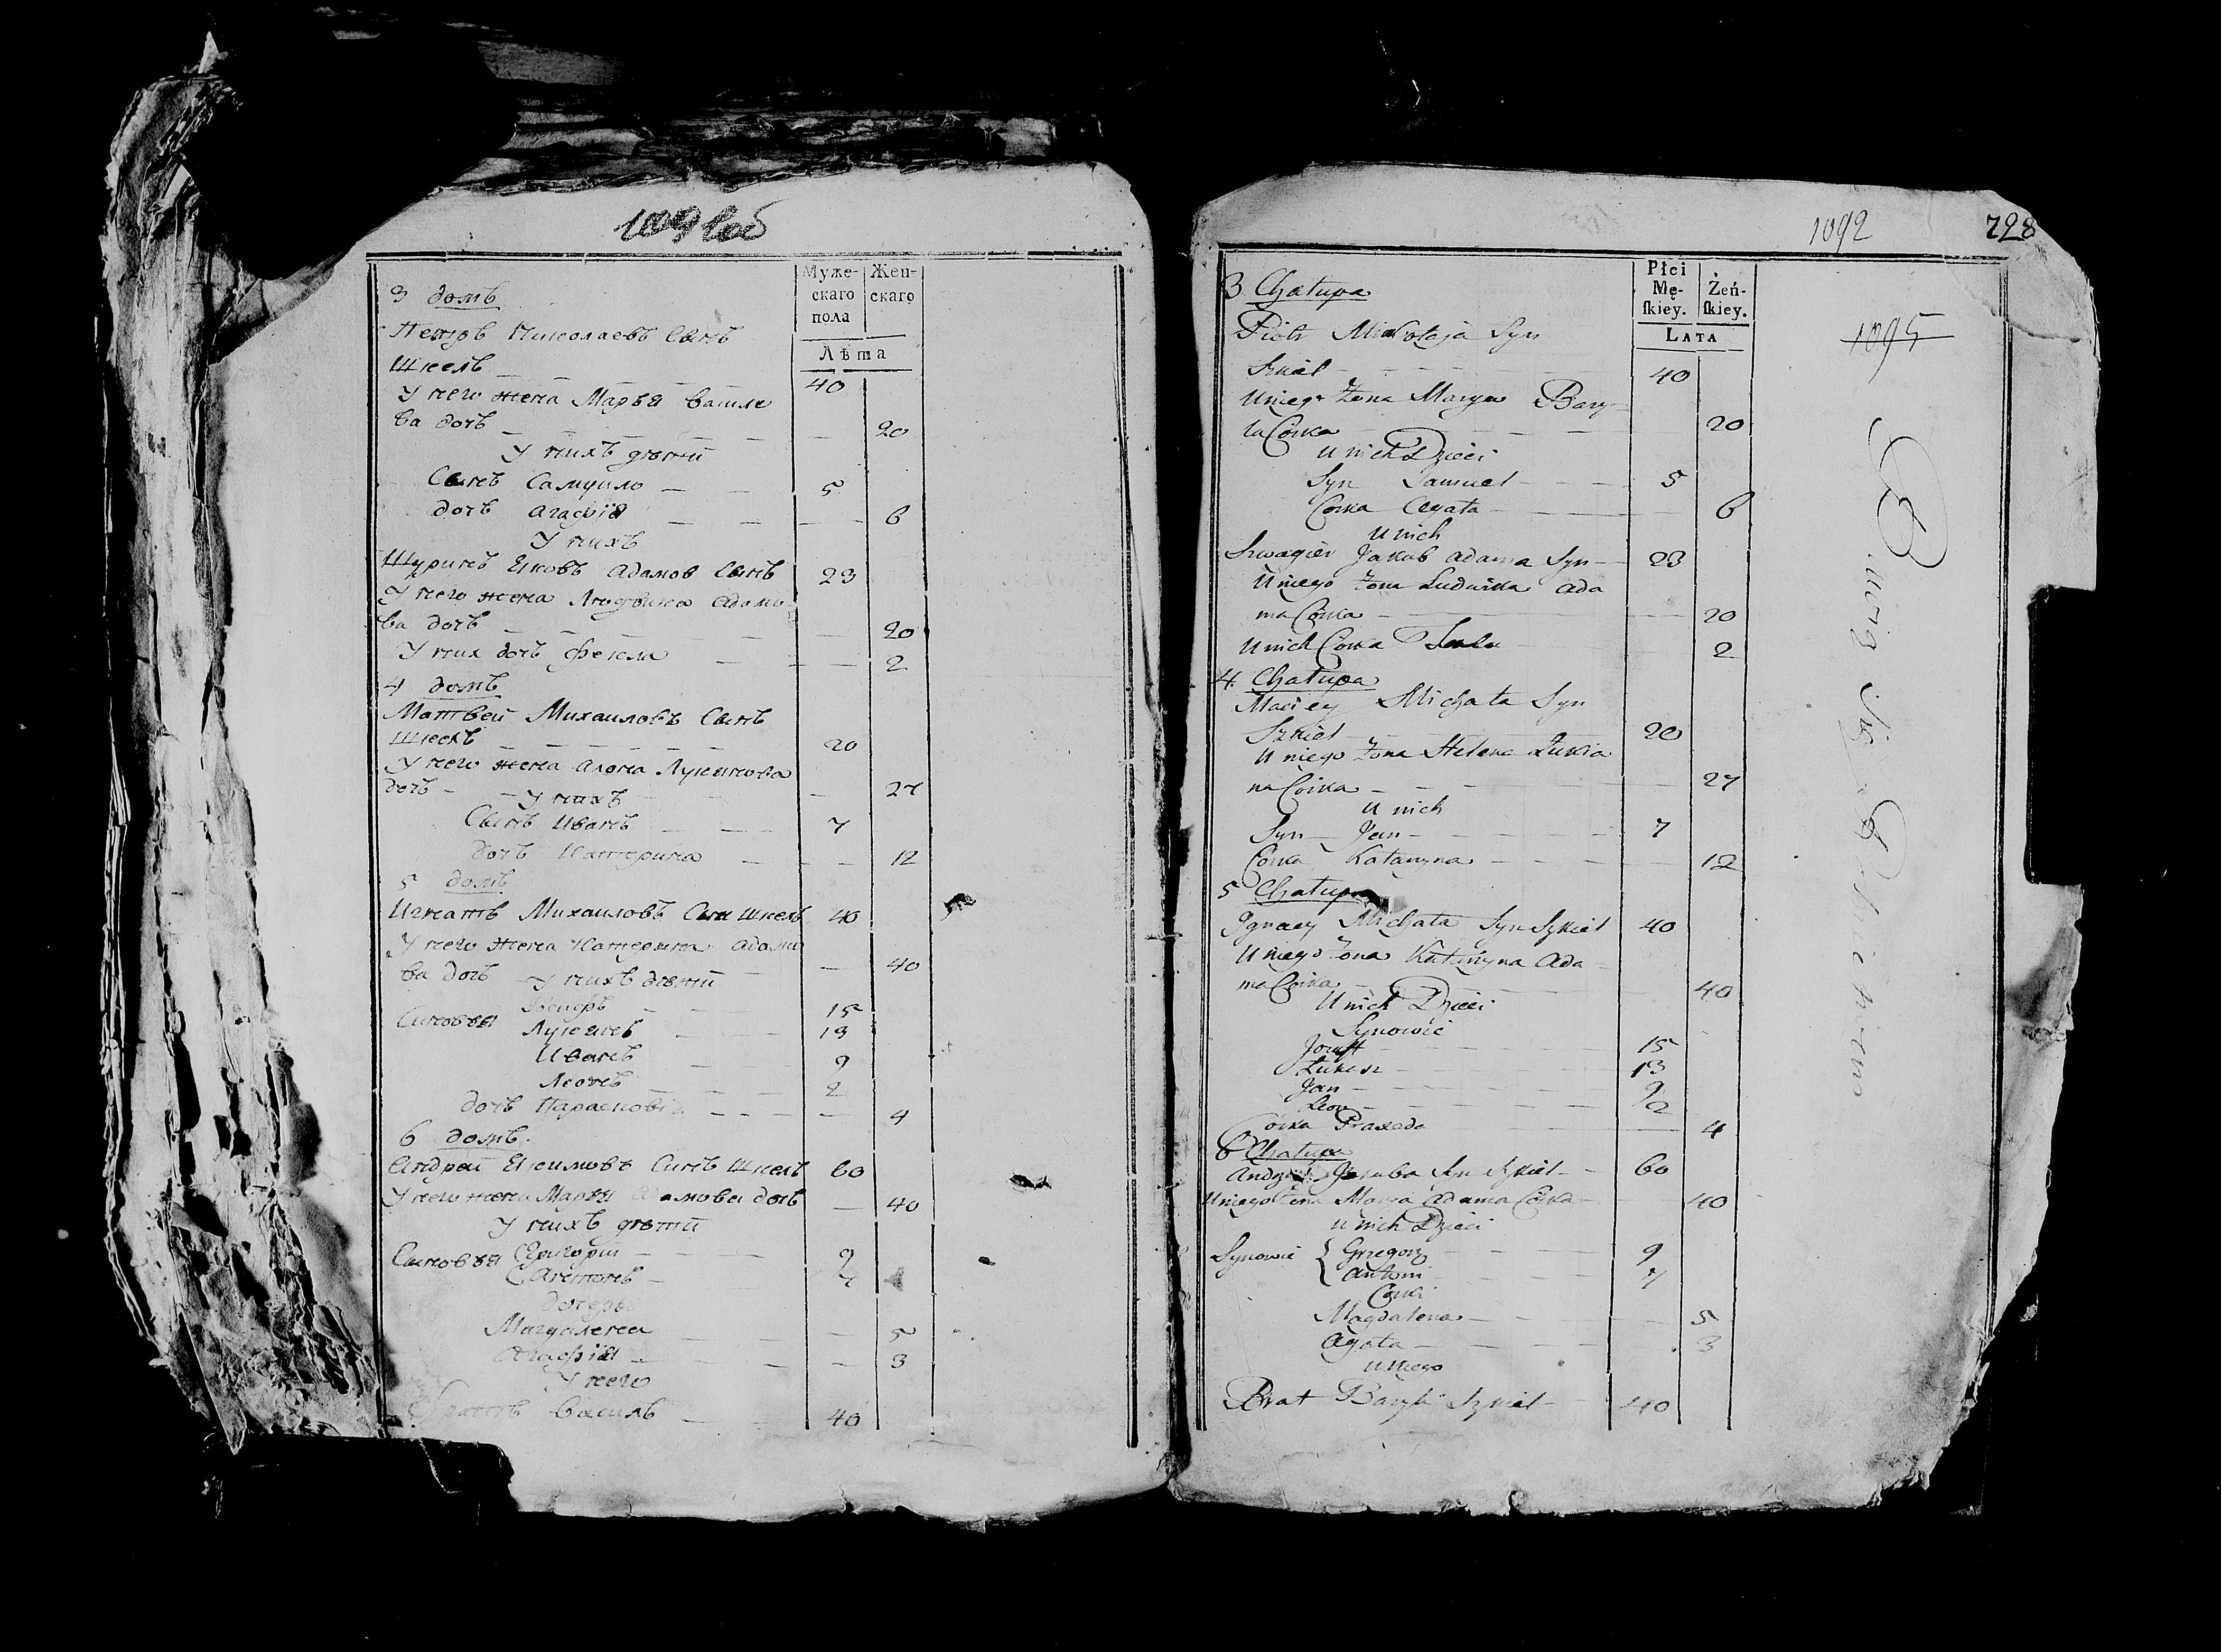 1091 об
Муже-
скаго
пола
Жен-
скаго
Лѣта
3 домъ
Петръ Николаевъ Сынъ
Шкель — 40
У него жена Марья Василе
ва дочь — 20
У нихъ дѣти
Сынъ Самуило — 5
дочь Агафія — 6
У нихъ
Шуринъ Яковъ Адамов Сынъ 23
У него жена Людвика Адамо
ва дочь — 20
У них дочь Фекла — 2
4 домъ
Матвей Михаиловъ Сынъ
Шкель — 20
У него жена Алена Лукянова
дочь — 27
У нихъ
Сынъ Иванъ — 7
дочь Катерина — 12
5 домъ
Игнатъ Михаиловъ Сын Шкель 40
У него жена Катерина Адамо
ва дочь — 40
У нихъ дѣти
Сыновья Іосифъ 15
Лукянъ — 13
Иванъ — 9
Леонъ — 2
дочь Парасковія — 4
6 домъ
Андрей Якимовъ Сынъ Шкель 60
У него жена Марья Адамова дочь — 40
У нихъ дѣти
Сыновья Григори — 9
Антонъ — 7
дочери
Магдалена — 5
Агафія — 3
У него
братъ Василь — 40
1092
728
Płci
Mę-
ſkiey.
Żeń-
ſkiey.
LATA
1095
3 Chałupa
Piotr Mikołaja Syn
Szkiel — 40
U niego Żona Marya Bazy-
la Córka — 20
U nich Dzieci
Syn Samuel — 5
Córka Agata — 6
U nich
Szwagier Jakub Adama Syn — 23
U niego Żona Ludwika Ada
ma Córka — 20
U nich Córka Tekla — 2
4 Chałupa
Maciey Michała Syn
Szkiel — 20
U niego Żona Helena Łukia
na Córka — 27
U nich
Syn Jan — 7
Córka Katarzyna — 12
5 Chałupa
Ignacy Michała Syn Szkiel 40
U niego Żona Katarzyna Ada
ma Córka — 40
U nich Dzieci
Synowie
Jozeff — 15
Łukasz — 13
Jan — 9
Leon — 2
Córka Praxeda — 4
6 Chałupa
Andrzey Jakuba Syn Szkiel — 60
U niego Żona Marya Adama Córka — 40
U nich Dzieci
Synowie { Grzegorz — 9
Antoni — 7
Corki
Magdalena — 5
Agata — 3
U niego
Brat Bazyli Szkiel — 40